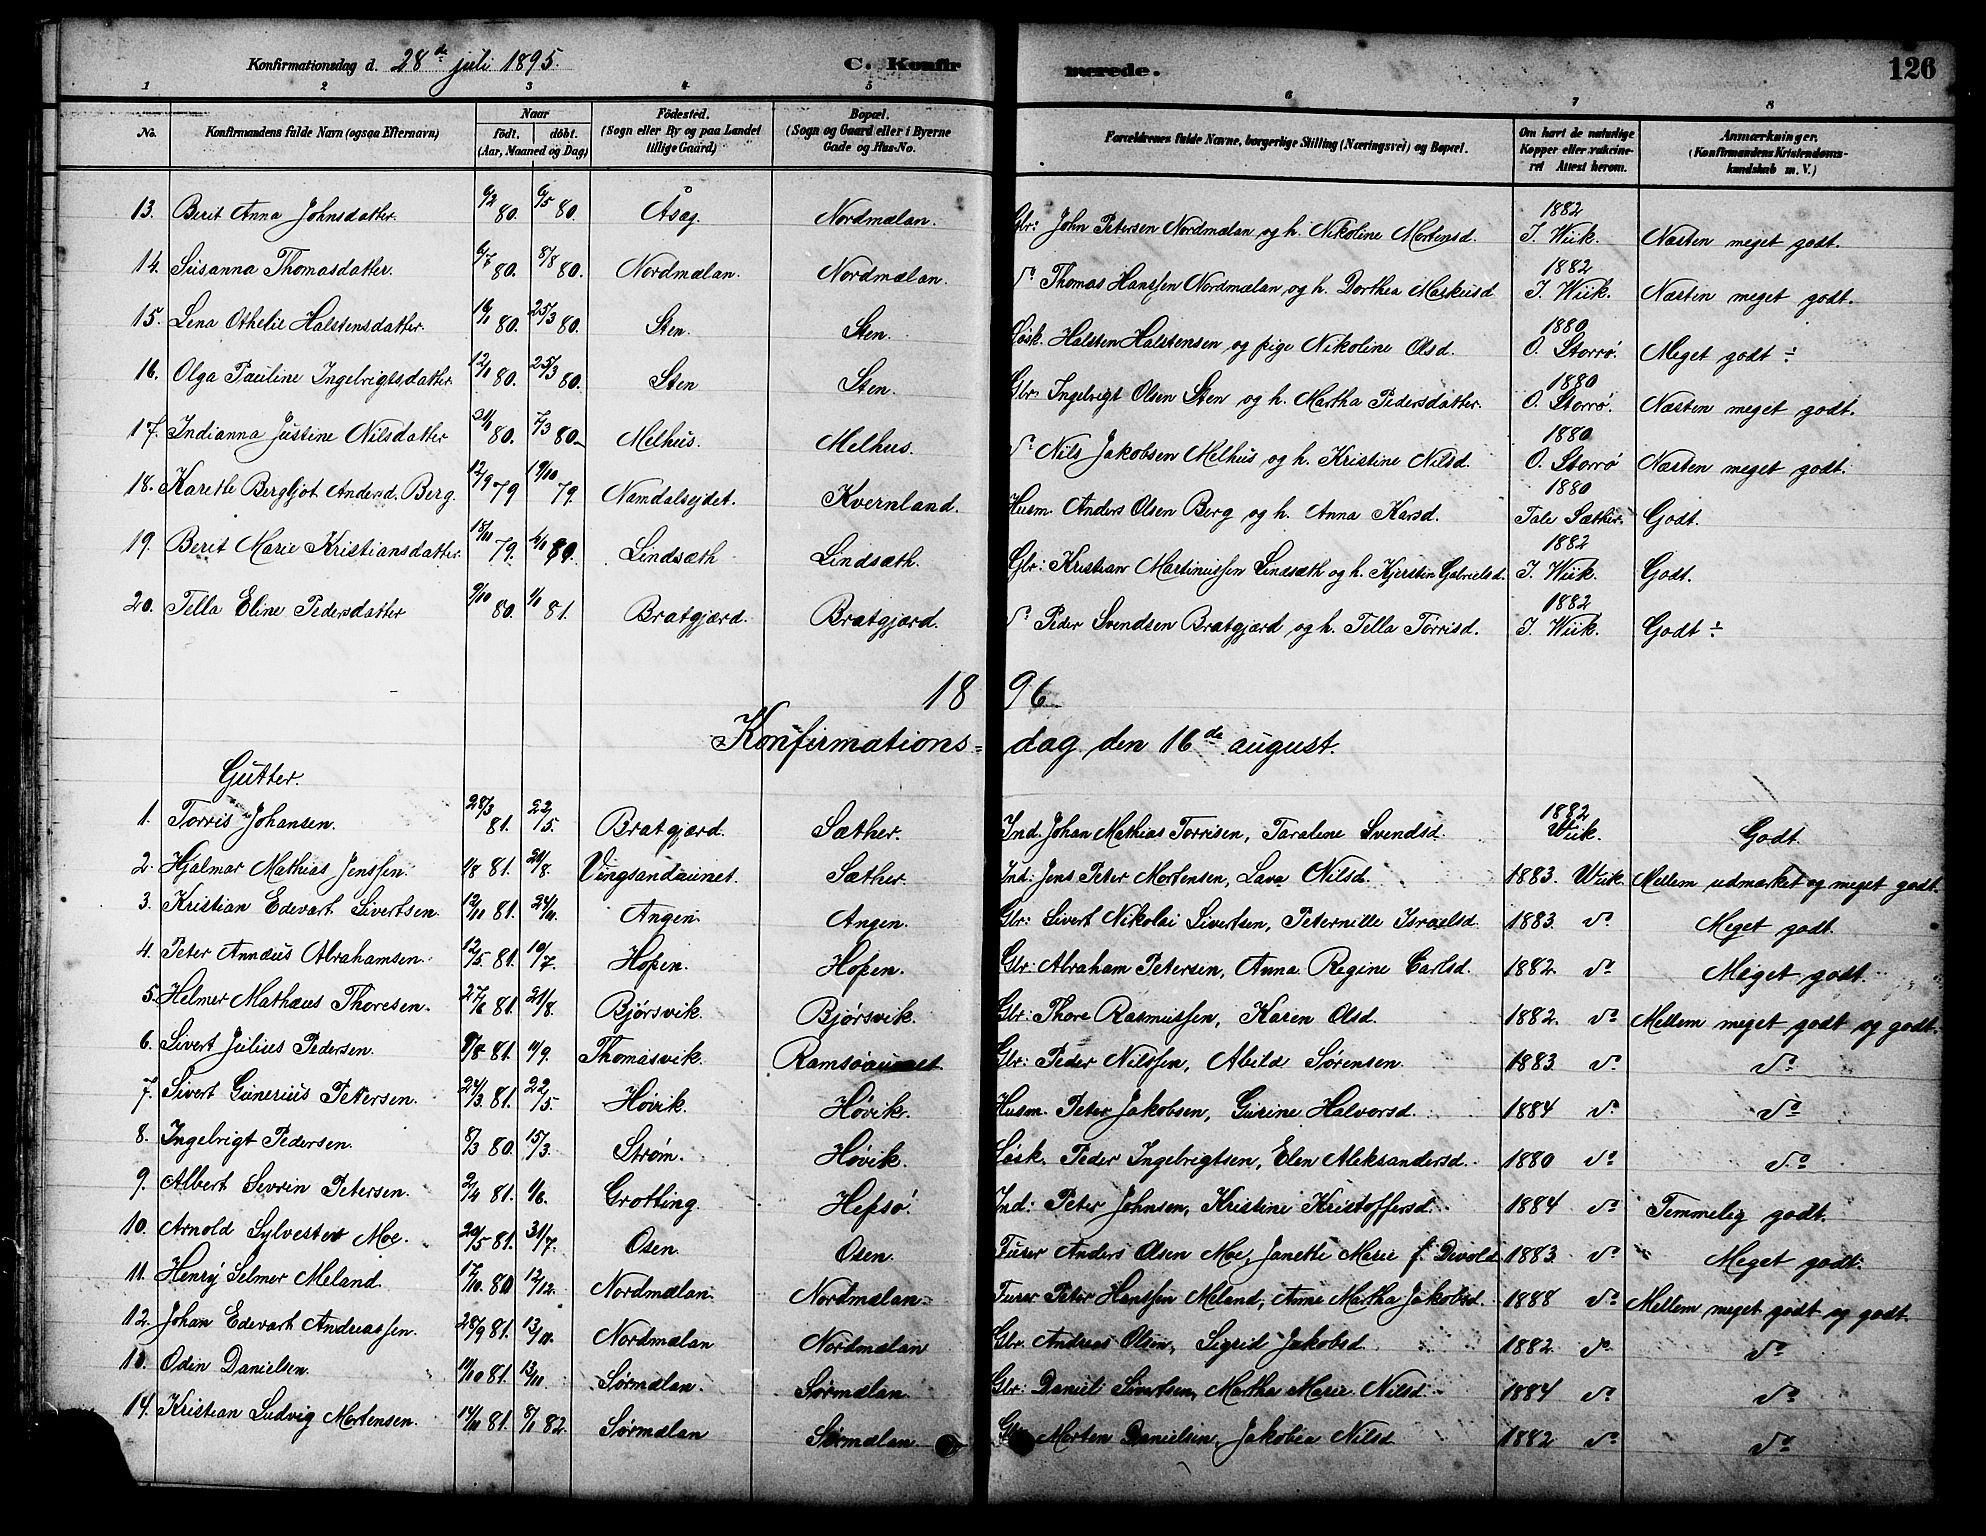 Konfirmationsdag d. 28de juli 1895. C. Konfirmerede. 126
1 2 3 4 5 6 7 8
No. Konfirmandens fulde Navn (ogsaa Efternavn) Naar født. døbt. (Aar, Maaned og Dag) Fødested. (Sogn eller By og paa Landet tillige Gaard) Bopæl. (Sogn og Gaard eller i Byerne Gade og Hus-No. Forældrenes fulde Navne, borgerlige Stilling (Næringsvei) og Bopæl. Om havt de naturlige Kopper eller vakcineret Attest herom. Anmærkninger. (Konfirmandens Kristendomskundskab m. V.)
13. Berit Anna Johnsdatter. 6/2 80. 6/5 80. Åsag. Nordmælan. Gbr: John Petersen Nordmælan og h. Nikoline Mortensd. 1882 I. Wiik. Næsten meget godt.
14. Susanna Thomasdatter. 6/7 80. 8/8 80. Nordmælan. Nordmælan. do Thomas Hanssen Nordmælan og h. Dorthea Maskusd 1882 I. Wiik. Næsten meget godt.
15. Lena Othelie Halstensdatter. 16/1 80. 25/3 80. Sten. Sten. Løsk. Halsten Halstensen og pige Nikoline Olsd. 1880 O. Storrø. Meget godt ÷
16. Olga Pauline Ingebrigtsdatter. 12/1 80. 25/3 80. Sten Sten. Gbr. Ingebrigt Olsen Sten og h. Martha Pedersdatter. 1880 O. Storrø. Næsten meget godt.
17. Indianna Justine Nilsdatter 31/1 80. 7/3 80. Melhus. Melhus. do Nils Jakobsen Melhus og h. Kristine Nilsd. 1880 O. Storrø Næsten meget godt.
18. Karethe Bergljot Andersd. Berg. 12/9 79 19/10 79. Namdalsejdet. Kvernland. Husm Anders Olsen Berg og h. Anna Karsd. 1880 Tale Sæther. Godt.
19. Berit Marie Kristiansdatter. 18/10 79. 4/1 80. Lindsæth Lindsæth. Gbr: Kristian Martinussen Lindsæth og h. Kjerstin Gabrielsd. 1882 I. Wiik. Godt.
20. Tella Eline Pedersdatter 9/10 80. 9/1 81. Bratgjærd. Bratgjærd. do Peder Svendsen Bratgjærd og h. Tella Torrisd. 1882 I. Wiik. Godt ÷
1896
Konfirmations=dag den 16de august.
Gutter.
1. Torris Johansen. 28/3 81. 22/5. Bratgjærd. Sæther. Ind. Johan Mathias Torrisen, Taraline Svendsd. 1882 Wiik. Godt.
2. Hjalmar Mathias Jenssen. 1/8 81. 21/8. Vingsandaunet. Sæther. Ind: Jens Peter Mortensen, Lava Nilsd. 1883. Wiik. Mellem udmærket og meget godt.
3. Kristian Edevart Sivertsen. 12/10 81. 24/11. Angen. Angen. Gbr: Sivert Nikolai Sivertsen, Peternille Israelsd. 1883. do Meget godt.
4. Peter Annæus Abrahamsen. 12/5 81. 10/7. Hopen. Hopen. Gbr: Abraham Petersen, Anna Regine Carlsd. 1882. do Meget godt.
5. Helmer Mathæus Thoresen. 27/6 81. 21/8. Bjørsvik. Bjørsvik. Gbr: Thore Rasmussen, Karen Olsd. 1882. do Mellem meget godt og godt.
6. Sivert Julius Pedersen. 9/8 81. 11/9. Thomasvik. Ramsøaunet. Gbr: Peder Nilssen, Abild Sørensen 1883 do do
7. Sivert Gunerius Petersen. 24/3 81. 22/5. Høvik. Høvik. Husm. Peter Jakobsen, Gurine Halvorsd. 1884 do do
8. Ingebrigt Pedersen. 8/3 80. 15/3. Strøm. Høvik. Løsk. Peder Ingebrigtsen, Elen Aleksandersd. 1880 do do
9. Albert Sevrin Petersen. 2/4 81. 1/6. Grotting. Hepsø. Ind: Peter Johnsen, Kristine Kristoffersd. 1884 do Temmelig godt.
10. Arnold Sylvester Moe. 20/5 81. 31/7. Osen. Osen. Furer Anders Olsen Moe, Janethe Marie f. Divold 1883. do Meget godt.
11. Henry Selmer Meland. 17/10 80 12/12. Nordmælan. Nordmælan. Furer Peter Hanssen Meland, Anne Martha Jakobsd. 1888 do Mellem meget godt og godt.
12. Johan Edevart Andreassen. 28/9 81. 13/11. Nordmælan Nordmælan Gbr. Andreas Olsen, Sigrid Jakobsd. 1882. do do
13. Odin Danielsen. 10/10 81. 13/11. Sørmælan. Sørmælan. Gbr: Daniel Sivertsen, Martha Marie Nilsd. 1884. do do
14. Kristian Ludvig Mortensen. 14/11 81. 8/1 82. Sørmælan Sørmælan. Gbr. Morten Danielsen, Jakobea Nilsd 1882 do do